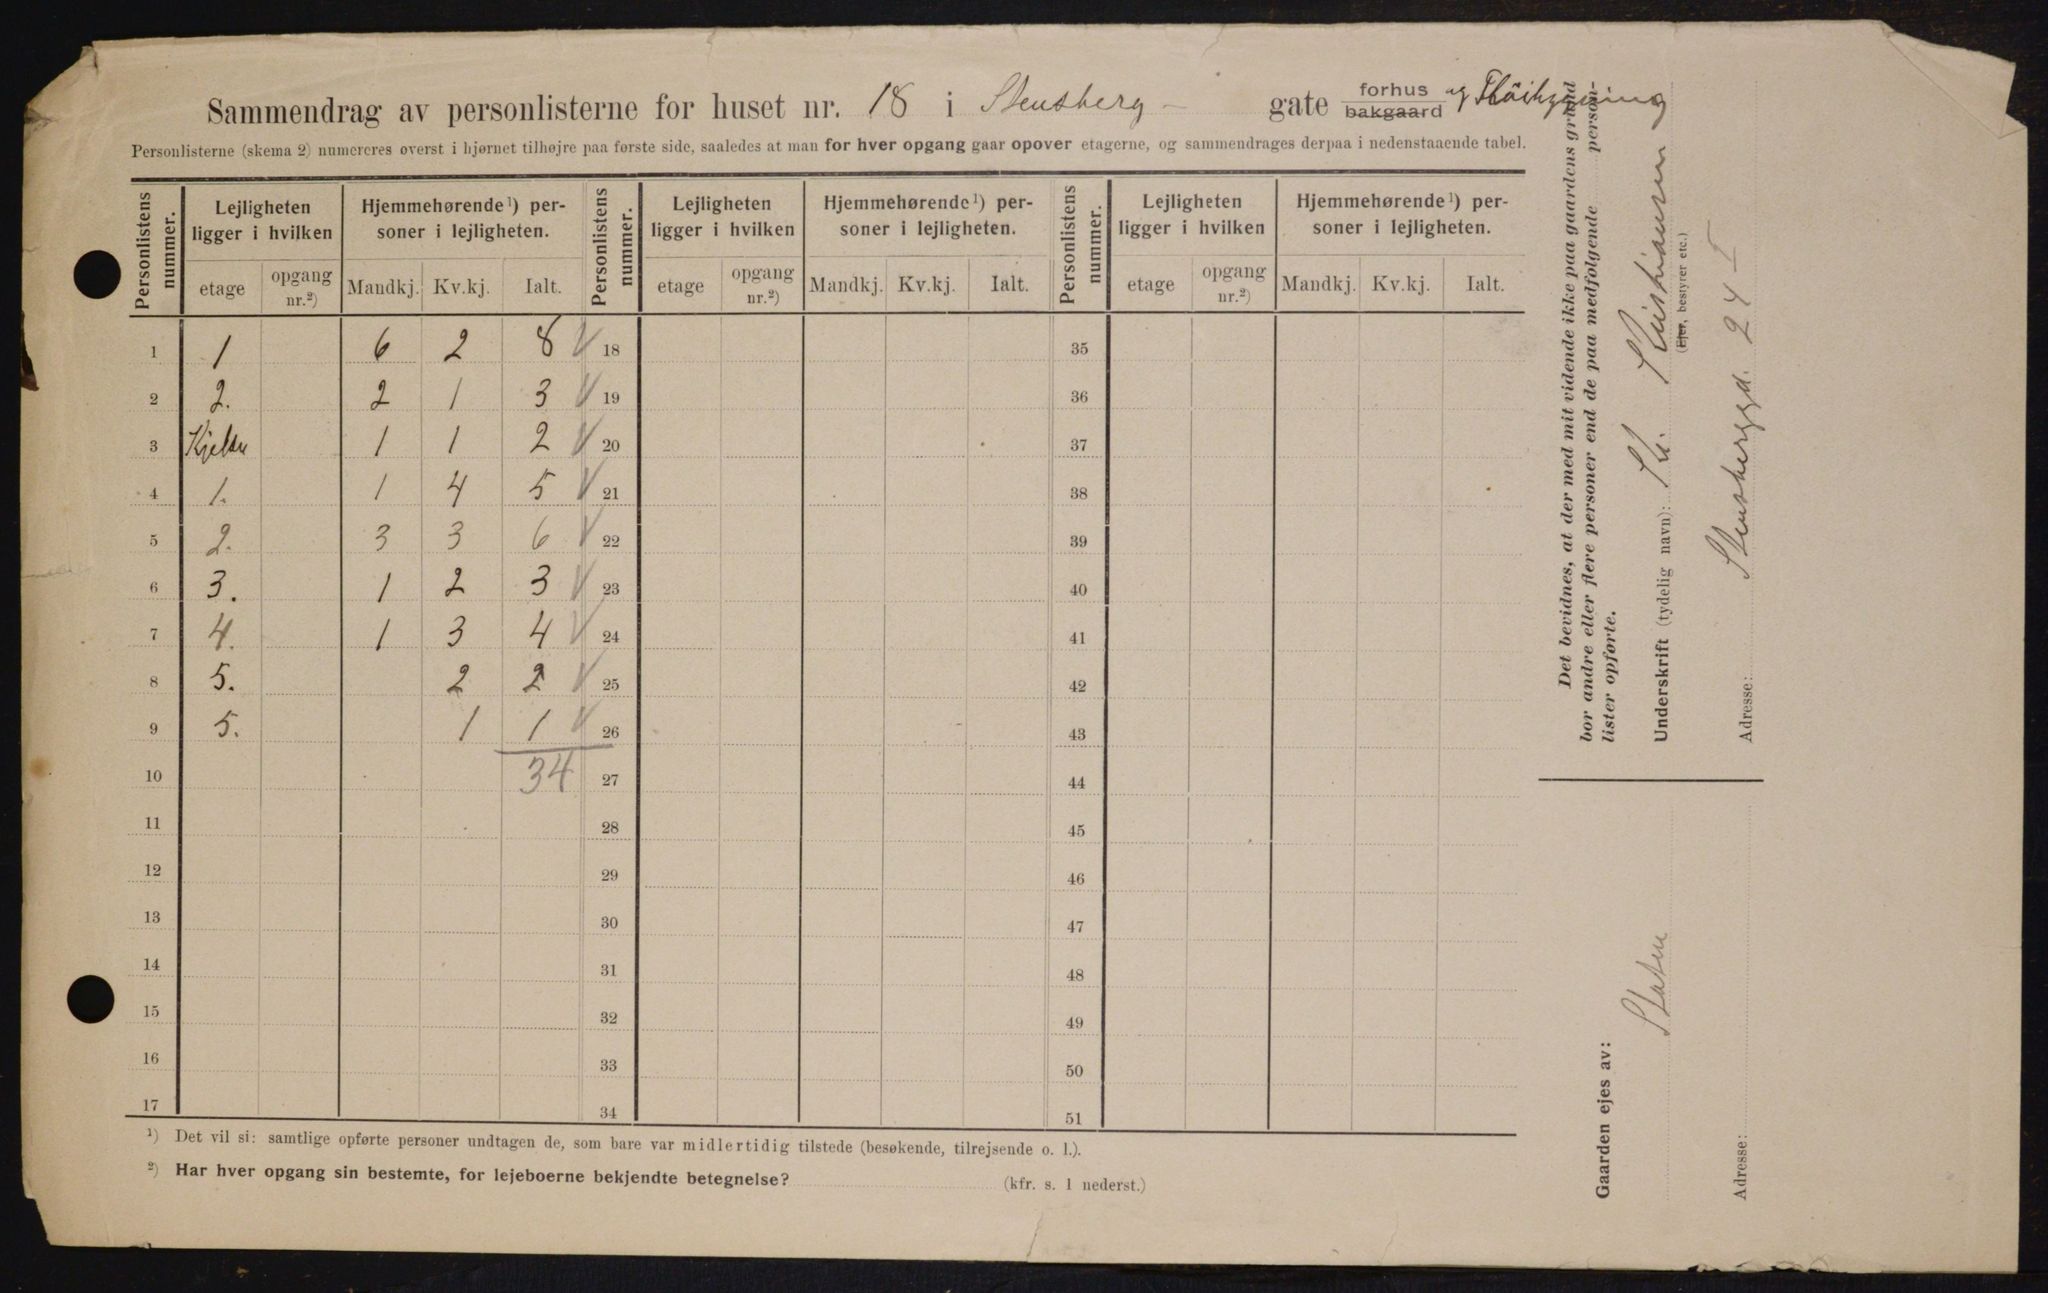 Sammendrag av personlisterne for huset nr. 18 i Stensberg- gate forhus bakgaard og Fløibygning
Personlisterne (skema 2) numereres øverst i hjørnet tilhøjre paa første side, saaledes at man for hver opgang gaar opover etagerne, og sammendrages derpaa i nedenstaaende tabel.
Personlistens nummer. Lejligheten ligger i hvilken Hjemmehørende¹) personer i lejligheten. Personlistens nummer. Lejligheten ligger i hvilken Hjemmehørende¹) personer i lejligheten. Personlistens nummer. Lejligheten ligger i hvilken Hjemmehørende¹) personer i lejligheten.
etage opgang nr.²) Mandkj. Kv.kj. Ialt. etage opgang nr.²) Mandkj. Kv.kj. Ialt. etage opgang nr.²) Mandkj. Kv.kj. Ialt.
1 1 6 2 8 √ 18 35
2 2. 2 1 3 √ 19 36
3 Kjelder 1 1 2 √ 20 37
4 1. 1 4 5 √ 21 38
5 2. 3 3 6 √ 22 39
6 3. 1 2 3 √ 23 40
7 4. 1 3 4 √ 24 41
8 5. 2 2 √ 25 42
9 5. 1 1 √ 26 43
10 34 27 44
11 28 45
12 29 46
13 30 47
14 31 48
15 32 49
16 33 50
17 34 51
¹) Det vil si: samtlige opførte personer undtagen de, som bare var midlertidig tilstede (besøkende, tilrejsende o. l.).
²) Har hver opgang sin bestemte, for lejeboerne bekjendte betegnelse? (kfr. s. 1 nederst.)
Det bevidnes, at der med mit vidende ikke paa gaardens grund
bor andre eller flere personer end de paa medfølgende person-
lister opførte.
Underskrift (tydelig navn): Kr. Kristiansen
(Ejer, bestyrer etc.)
Adresse: Stensberggd. 24 I
Gaarden ejes av:
Staten
Adresse: